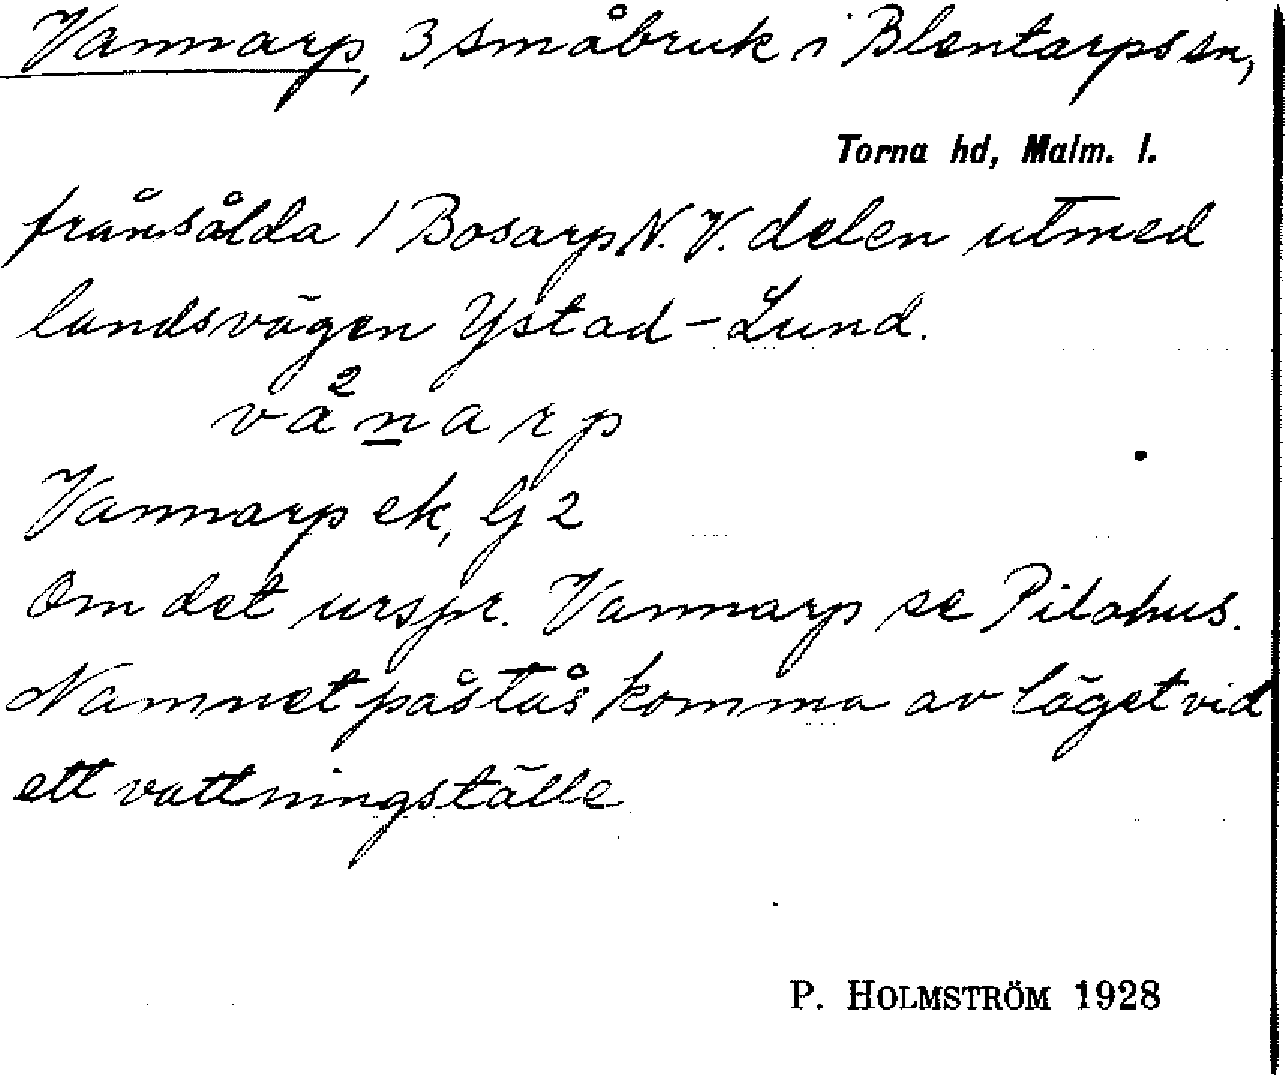 Vannarp, 3 småbruk i Blentarps sn,
Torna hd, Malm. l.
frånsålda 1 Bosarp N.V. delen utmed
landsvägen Ystad-Lund.
vä²narp
Vannarp ek, Gj 2
Om det urspr. Vannarp se Pilahus.
Namnet påstås komma av läget vid
ett vattningställe
P. HOLMSTRÖM 1928